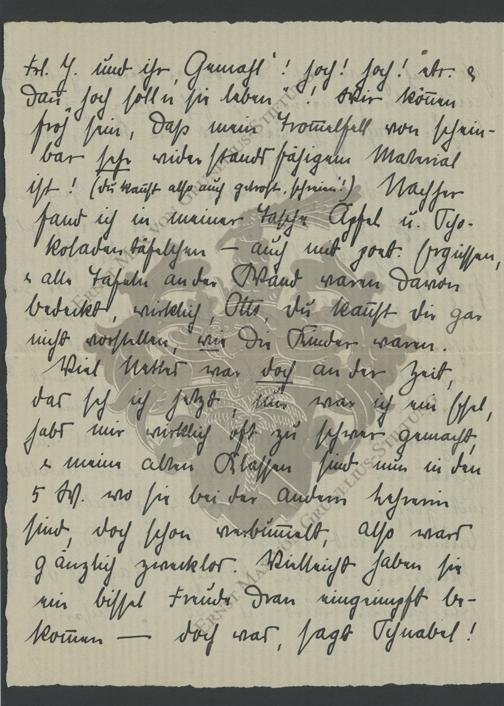 Frl. Y. und ihr „Gemahl“! hoch! hoch! etc. &
dan „hoch sollen sie leben“! Wir können
froh sein, daß mein Tromelfell von schein-
bar sehr widerstandsfähigem Material
ist! (du kanst also auch getrost „schrein“!) Nachher
fand ich in meiner Tasche Äpfel u. Scho-
koladentäfelchen – auch mit poet. Ergüssen,
& alle Tafeln an der Wand waren davon
bedeckt, wirklich, Otto, du kanst dir gar
nicht vorstellen, wie die Kinder waren.
Viel Nettes war doch an der Zeit,
das seh ich jetzt, nur war ich ein Esel,
habs mir wirklich oft zu schwer gemacht,
& meine alten Klassen sind nun in den
5 W. wo sie bei der andern Lehrerin
sind, doch schon verbumelt, also wars
gänzlich zwecklos. Vielleicht haben sie
ein bissel Freude dran eingeimpft be-
komen — doch was, sagt Schnabel!
ERNST MAX VON GRUNELIUS-STIFTUNG
ERNST MAX VON GRUNELIUS-STIFTUNG